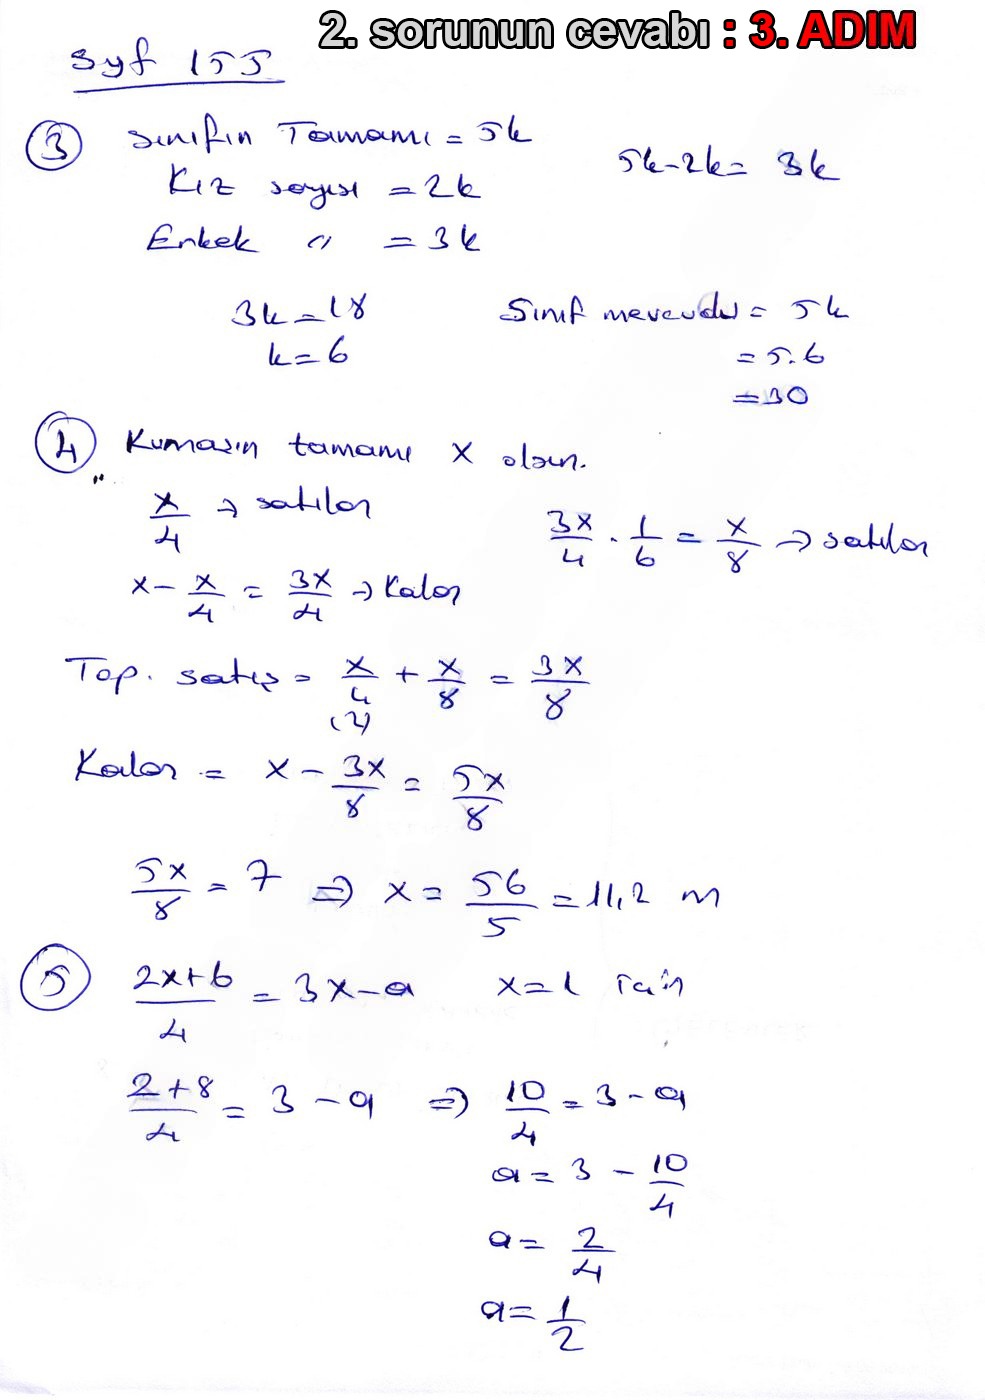 2. sorunun cevabı : 3. ADIM
Syf 155
3 Sınıfın Tamamı = 5k
5k-2k= 3k
Kız sayısı = 2k
Erkek " = 3k
3k=18
Sınıf mevcudu = 5k
k=6
= 5.6
=30
4 Kumaşın tamamı x olsun.
x/4 → satılan
3x/4 . 1/6 = x/8 → satılan
x - x/4 = 3x/4 → Kalan
Top. satış = x/4 + x/8 = 3x/8
(2)
Kalan = x - 3x/8 = 5x/8
5x/8 = 7 ⇒ x = 56/5 = 11,2 m
5 (2x+6)/4 = 3x-a x=1 için
(2+8)/4 = 3-a ⇒ 10/4 = 3-a
a = 3 - 10/4
a = 2/4
a = 1/2